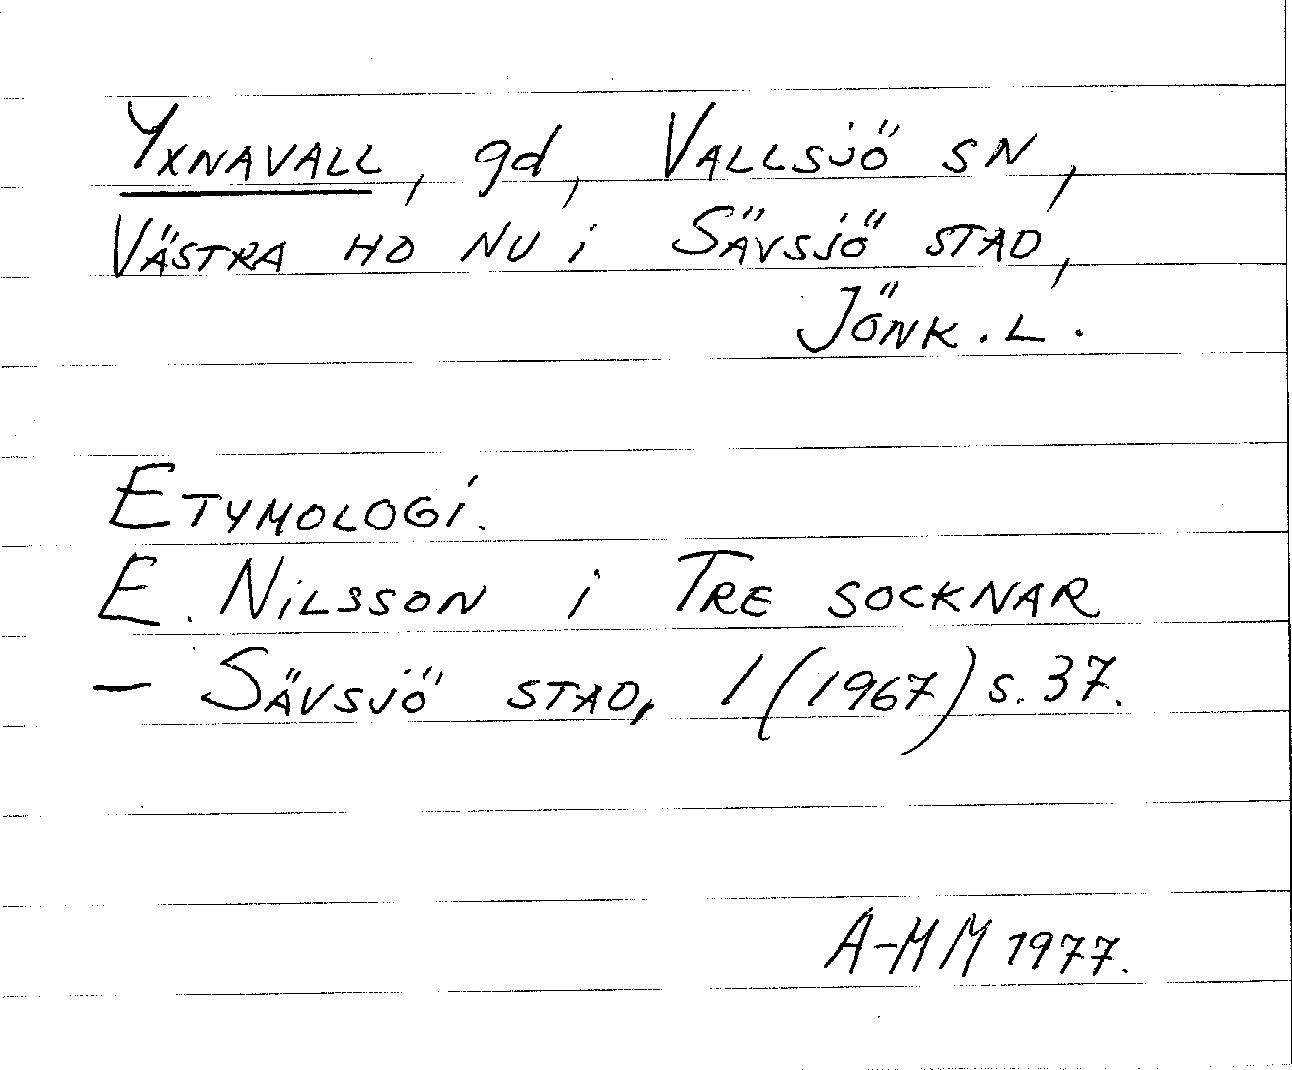 Yxnavall, gd, Vallsjö sn,
Västra hd nu i Sävsjö stad,
Jönk. l.
Etymologi.
E. Nilsson i Tre socknar
– Sävsjö stad, 1 (1967) s. 37.
A-MM 1977.